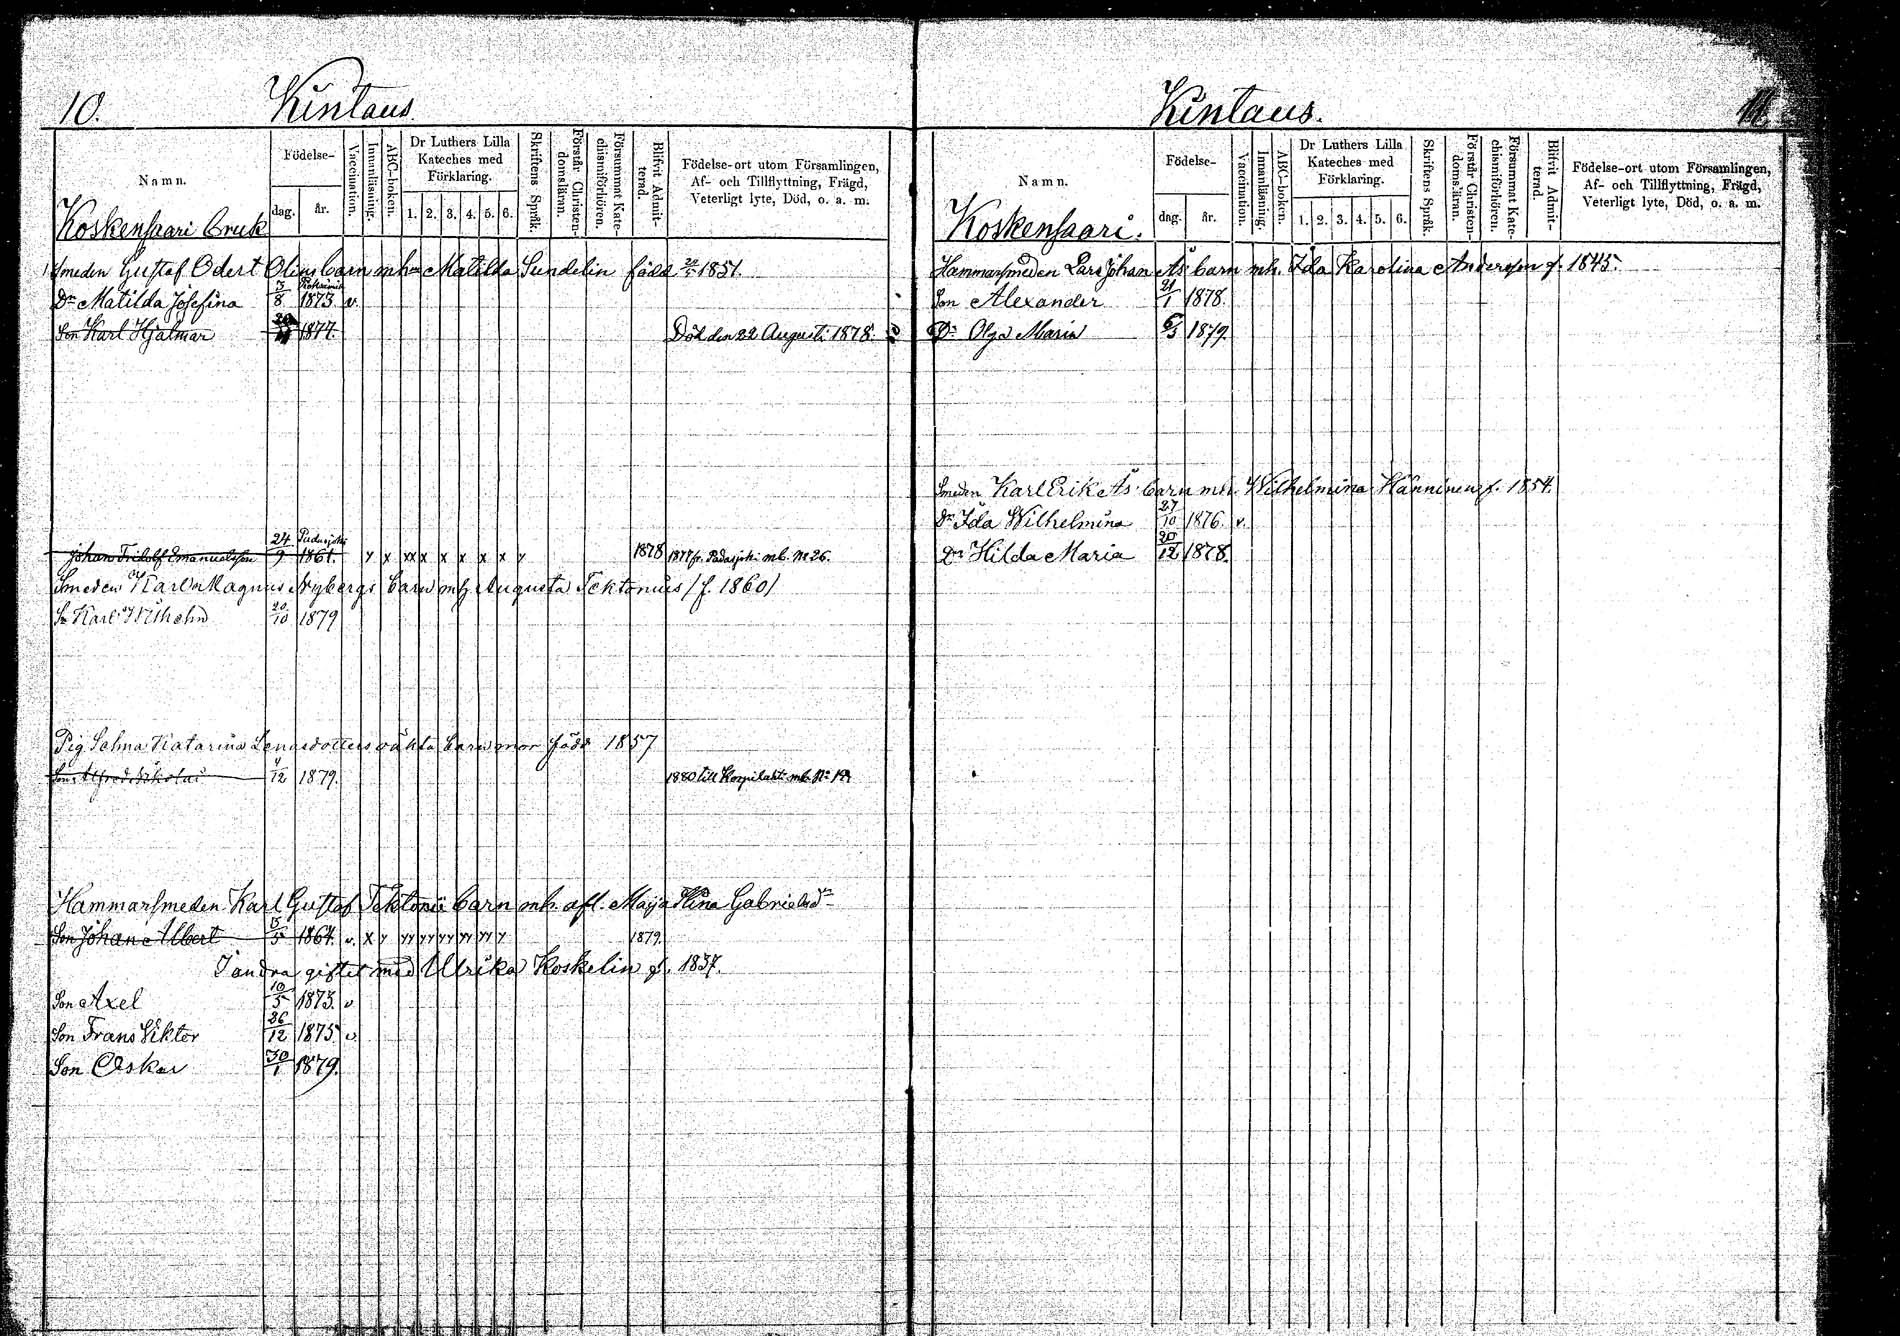 10.
Kintaus
Namn.
Födelse-
dag.
år.
Vaccination.
Innanläsning.
ABC-boken.
Dr Luthers Lilla
Kateches med
Förklaring.
1. 2. 3. 4. 5. 6.
Skriftens Språk.
Förstår Christen-
domsläran.
Försummat Kate-
chismiförhören.
Blifvit Admit-
terad.
Födelse-ort utom Församlingen,
Af- och Tillflyttning, Frägd,
Veterligt lyte, Död, o. a. m.
Koskensaari Bruk
Smeden Gustaf Odert Olins barn mh Matilda Sundelin född 1851.
Dr Matilda Josefina 3/8 1873 v.
Son Karl Hjalmar 1877. Död den 22 Augusti 1878.
Johan Fridolf Emanuelsson 24/9 Padasjoki 1861. y x xx x x x x x y 1878 1877 fr. Padasjoki mb. No 26.
Smeden Karl Magnus Nybergs barn mh Augusta Tektonius /f. 1860/
Sn Karl Wilhelm 20/10 1879
Pig. Selma Katarina Lenasdotters oäkta barn mor född 1857
Son Alfred Nikolai /12 1879. 1880 till Korpilahti mb. No
Hammarsmeden Karl Gustaf Tektonii barn mh. afl. Maja Stina Gabrielsdr
Son Johan Albert /5 1864. v. x y yy yy yy yy yy y 1879.
I andra giftet med Ulrika Koskelin f. 1837.
Son Axel 10/5 1873. v
Son Frans Viktor 26/12 1875 v.
Son Oskar 30/1 1879.
Kintaus.
11
Namn.
Födelse-
dag.
år.
Vaccination.
Innanläsning.
ABC-boken.
Dr Luthers Lilla
Kateches med
Förklaring.
1. 2. 3. 4. 5. 6.
Skriftens Språk.
Förstår Christen-
domsläran.
Försummat Kate-
chismiförhören.
Blifvit Admit-
terad.
Födelse-ort utom Församlingen,
Af- och Tillflyttning, Frägd,
Veterligt lyte, Död, o. a. m.
Koskensaari.
Hammarsmeden Lars Johan Ås barn mh. Ida Karolina Andersson f. 1845.
Son Alexander 21/1 1878.
Dr Olga Maria 6/3 1879.
Smeden Karl Erik Ås barn mh. Wilhelmina Hänninen f. 1854.
Dr Ida Wilhelmina 27/10 1876. v.
Dr Hilda Maria 20/12 1878.